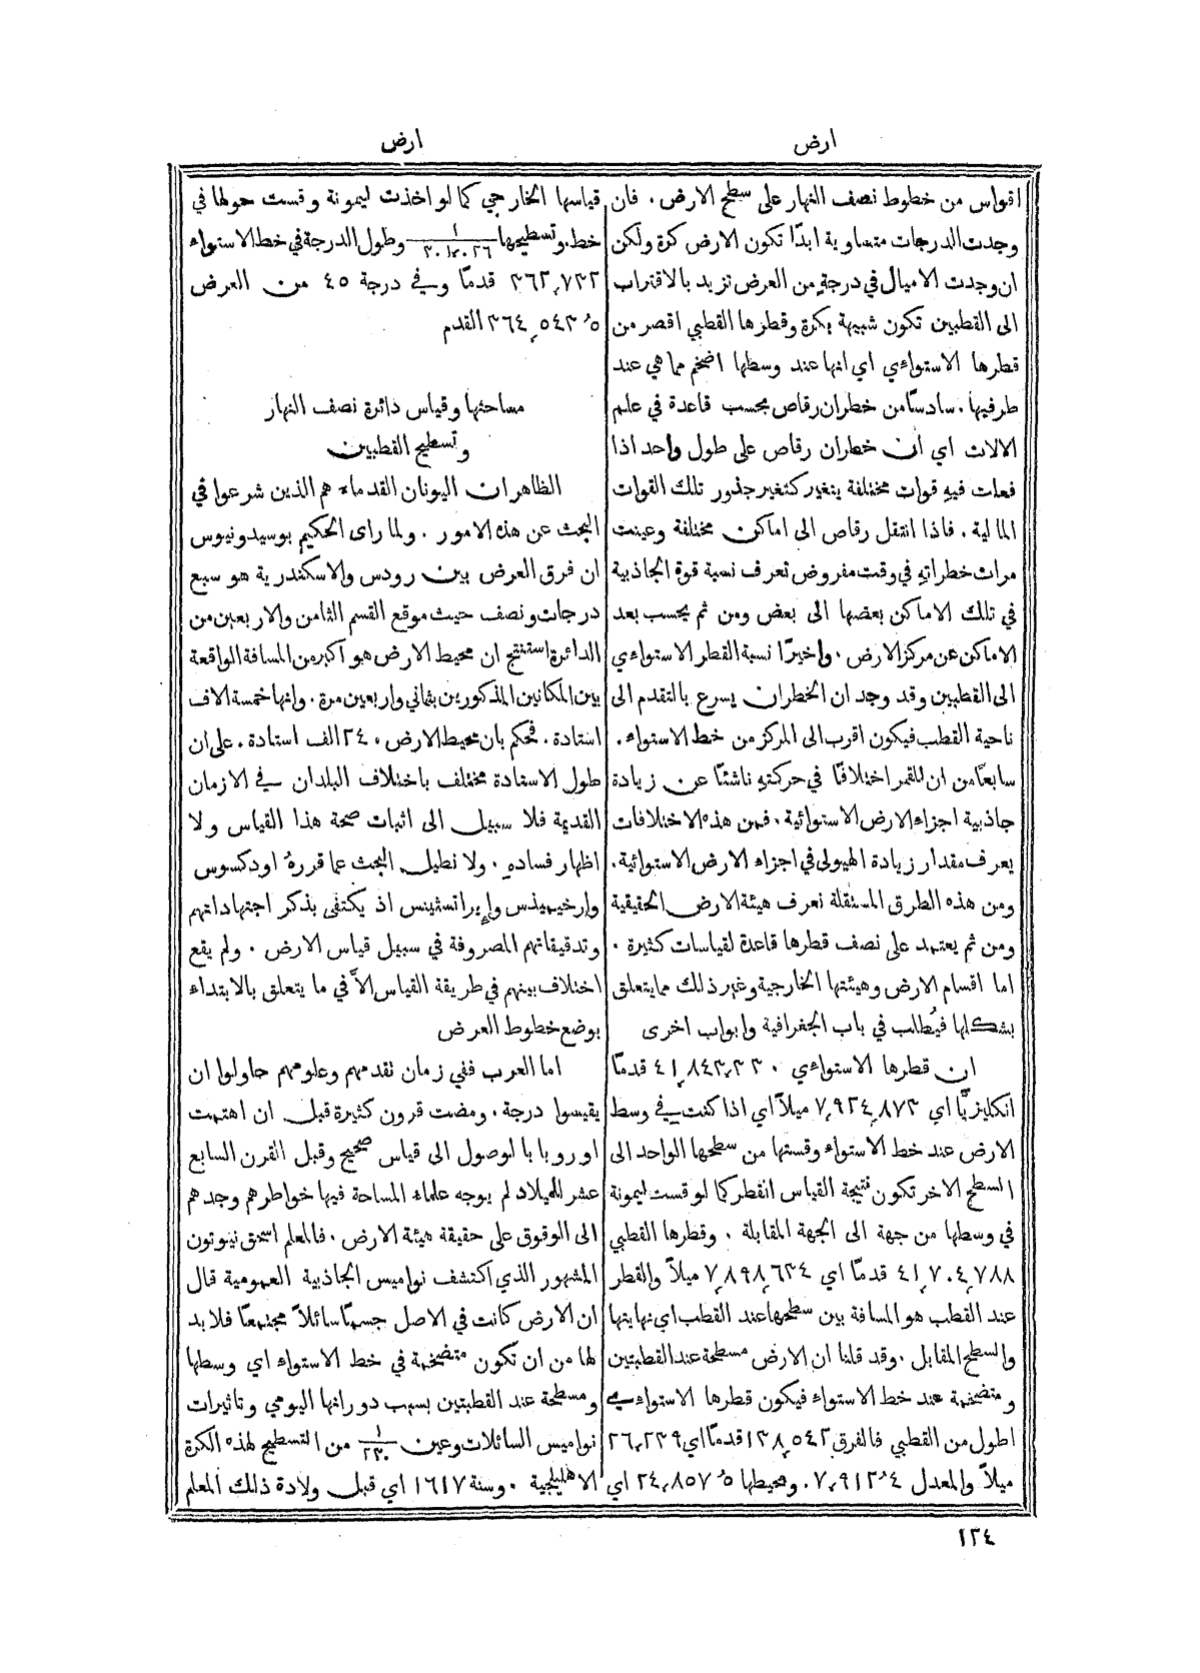 ارض
ارض
اقواس من خطوط نصف النهار على سطح الارض . فان
وجدت الدرجات متساوية ابدًا تكون الارض كرة ولكن
ان وجدت الاميال في درجةٍ من العرض تزيد بالاقتراب
الى القطبين تكون شبيهة بكرة وقطرها القطبي اقصر من
قطرها الاستواءي اي انها عند وسطها اضخم مما هي عند
طرفيها . سادسًا من خطران رقاص بحسب قاعدة في علم
الالات اي ان خطران رقاص على طول واحد اذا
فعلت فيهِ قوات مختلفة يتغير كتغير جذور تلك القوات
المالية . فاذا انتقل رقاص الى اماكن مختلفة وعينت
مرات خطراتهِ في وقت مفروض تعرف نسبة قوة الجاذبية
في تلك الاماكن بعضها الى بعض ومن ثم يحسب بعد
الاماكن عن مركز الارض . واخيرًا نسبة القطر الاستواءي
الى القطبين وقد وجد ان الخطران يسرع بالتقدم الى
ناحية القطب فيكون اقرب الى المركز من خط الاستواء .
سابعًا من ان للقمر اختلافًا في حركتهِ ناشئًا عن زيادة
جاذبية اجزاء الارض الاستوائية . فمن هذه الاختلافات
يعرف مقدار زيادة الهيولى في اجزاء الارض الاستوائية .
ومن هذه الطرق المستقلة تعرف هيئة الارض الحقيقية
ومن ثم يعتمد على نصف قطرها قاعدة لقياسات كثيرة .
اما اقسام الارض وهيئتها الخارجية وغير ذلك مما يتعلق
بشكلها فيُطالب في باب الجغرافية وابواب اخرى
ان قطرها الاستواءي ٤١٬٨٤٣٬٣٣٠ قدمًا
انكليزيًّا اي ٧٬٩٢٤٬٨٧٣ ميلاً اي اذا كنت في وسط
الارض عند خط الاستواء وقستها من سطحها الواحد الى
السطح الاخر تكون نتيجة القياس انقطر كما لو قست ليمونة
في وسطها من جهة الى الجهة المقابلة . وقطرها القطبي
٤١٬٧٠٤٬٧٨٨ قدمًا اي ٧٬٨٩٨٬٦٣٤ ميلاً والقطر
عند القطب هو المسافة بين سطحها عند القطب اي نهايتها
والسطح المقابل . وقد قلنا ان الارض مسطحة عند القطبتين
ومتضخمة عند خط الاستواء فيكون قطرها الاستواءي
اطول من القطبي فالفرق ١٣٨٬٥٤٢ قدمًا اي ٢٦٬٢٣٩
ميلاً والمعدل ٧٬٩١٢٫٤ . ومحيطها ٢٤٬٨٥٧٫٥ اي
قياسها الخارجي كما لو اخذت ليمونة وقست حولها في
خط . وتسطيحها وطول الدرجة في خط الاستواء
٣٦٢٬٧٣٢ قدمًا وفي درجة ٤٥ من العرض
٣٦٤٬٥٤٣٫٥ القدم
مساحتها وقياس دائرة نصف النهار
وتسطيح القطبين
الظاهر ان اليونان القدماء هم الذين شرعوا في
البحث عن هذه الامور . ولما راى الحكيم بوسيدونيوس
ان فرق العرض بين رودس والاسكندرية هو سبع
درجات ونصف حيث موقع القسم الثامن والاربعين من
الدائرة استنتج ان محيط الارض هو اكبر من المسافة الواقعة
بين المكانين المذكورين بثماني واربعين مرة . وانها خمسة الاف
استادة . فحكم بان محيط الارض ٢٤٠ الف استادة . على ان
طول الاستادة مختلف باختلاف البلدان في الازمان
القديمة فلا سبيل الى اثبات صحة هذا القياس ولا
اظهار فساده . ولا نطيل البحث عما قررهُ اودكسوس
وارخيميذس وإيراتستينس اذ يكتفى بذكر اجتهاداتهم
وتدقيقاتهم المصروفة في سبيل قياس الارض . ولم يقع
اختلاف بينهم في طريقة القياس الاّ في ما يتعلق بالابتداء
بوضع خطوط العرض
اما العرب ففي زمان تقدمهم وعلومهم حاولوا ان
يقيسوا درجة . ومضت قرون كثيرة قبل ان اهتمت
اوروبا بالوصول الى قياس صحيح وقبل القرن السابع
عشر للميلاد لم يوجه علماء المساحة فيها خواطرهم وجدهم
الى الوقوق على حقيقة هيئة الارض . فالمعلم اسحق نيوتون
المشهور الذي اكتشف نواميس الجاذبية العمومية قال
ان الارض كانت في الاصل جسمًا سائلاً مجتمعًا فلا بد
لها من ان تكون متضخمة في خط الاستواء اي وسطها
ومسطحة عند القطبتين بسبب دورانها اليومي وتاثيرات
نواميس السائلات وعين ١/٢٣٠ من التسطيح لهذه الكرة
الاهليلجية . وسنة ١٦١٧ اي قبل ولادة ذلك المعلم
١٢٤